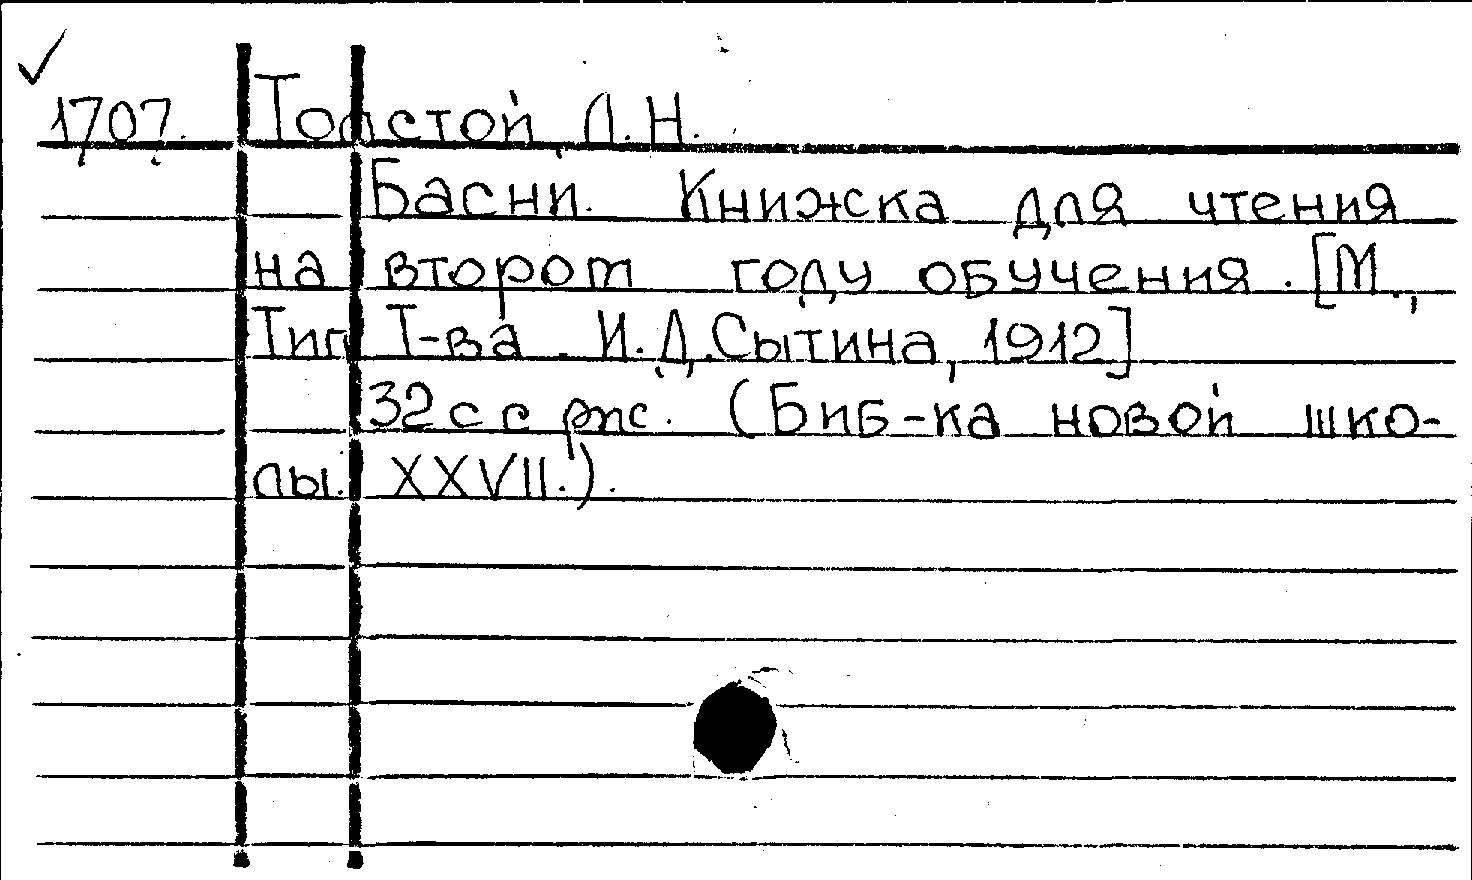 1707. Толстой, Л.Н.
Басни. Книжка для чтения
на втором году обучения. [М.,
Тип. Т-ва И.Д. Сытина, 1912]
32 с с рис. (Биб-ка новой шко-
лы. XXVII.).